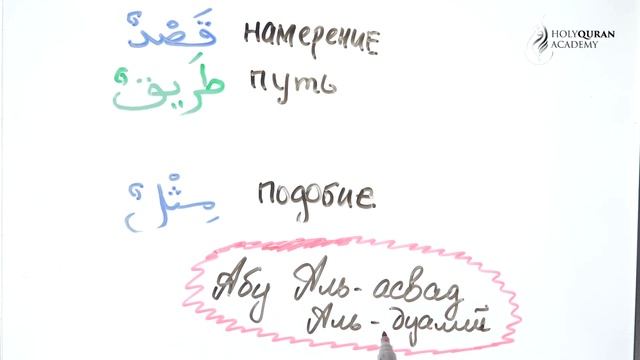 قَصْدٌ намерение
HOLYQURAN
ACADEMY
طَرِيقٌ путь
مِثْلٌ подобие
Абу Аль-асвад
Аль-дуалий